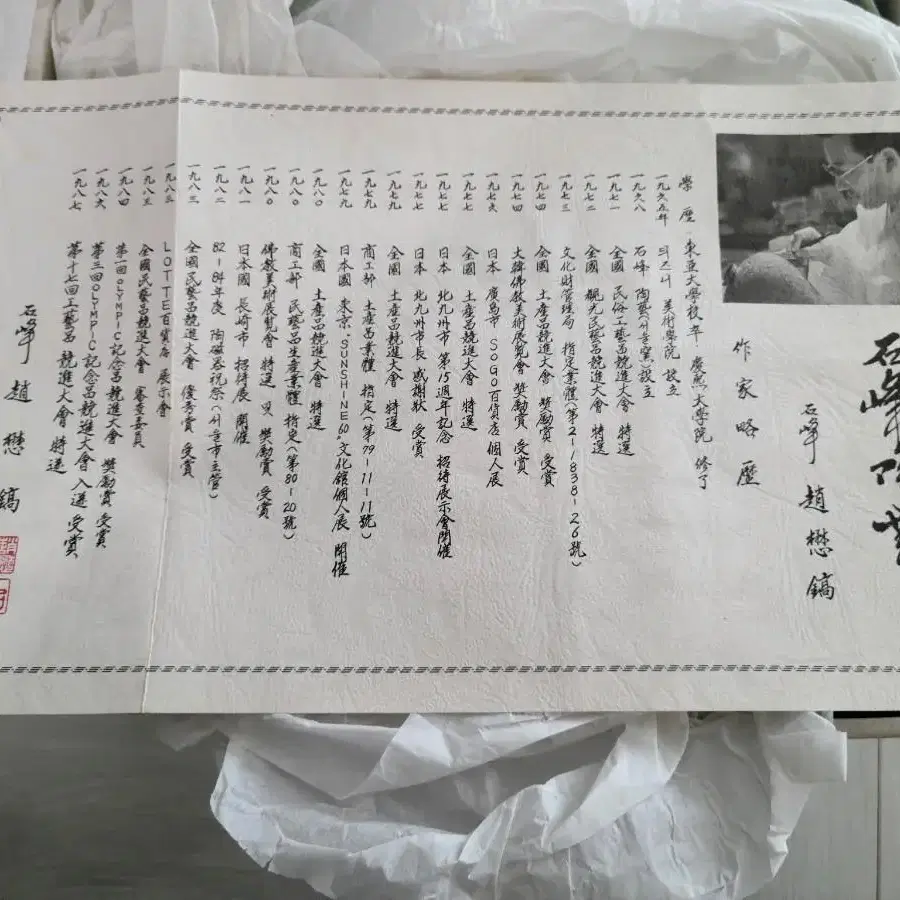 石峰
石峰 趙 懋 鎬
作家略歷
學歷 東亞大學校 卒 慶熙大學院 修了
一九六五年 美術學院 設立
一九六八 石峰 陶藝(서울窯)設立
全國 民俗工藝品競進大會 特選
一九七二 全國 觀光民藝品競進大會 特選
一九七三 文化財管理局 指定業體(第21-838-26號)
一九七四 全國 土産品競進大會 奬勵賞 受賞
一九七四 大韓佛敎美術展覽會 奬勵賞 受賞
一九七六 日本 廣島市 SOGO百貨店 個人展
土産品競進大會 特選
一九七七 日本 北九州市 第15週年記念 招待展示會開催
一九七七 日本 北九州市長 感謝狀 受賞
一九七九 全國 土産品競進大會 特選
一九七九 商工部 土産品業體 指定(第79-11-11號)
一九七九 日本國 東京 "SUNSHINE60" 文化館個人展 開催
一九八〇 全國 土産品競進大會 特選
一九八〇 商工部 民藝品生産業體 指定(第80-20號)
一九八〇 佛敎美術展覽會 特選 및 奬勵賞 受賞
一九八一 日本國 長崎市 招待展 開催
一九八二 82-84年度 陶磁器祝祭(서울市主管)
一九八三 全國民藝品競進大會 優秀賞 受賞
一九八三 LOTTE百貨店 展示會
一九八三 全國民藝品競進大會 審査委員
一九八四 第一回OLYMPIC記念品競進大會 奬勵賞 受賞
一九八六 第三回OLYMPIC記念品競進大會 入選 受賞
一九八七 第十七回工藝品 競進大會 特選
石峰 趙 懋 鎬